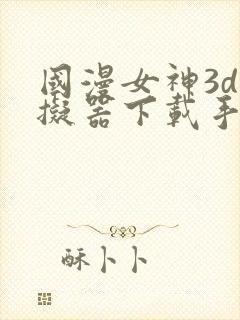 國漫女神3d
擬器下載手
酥卜卜